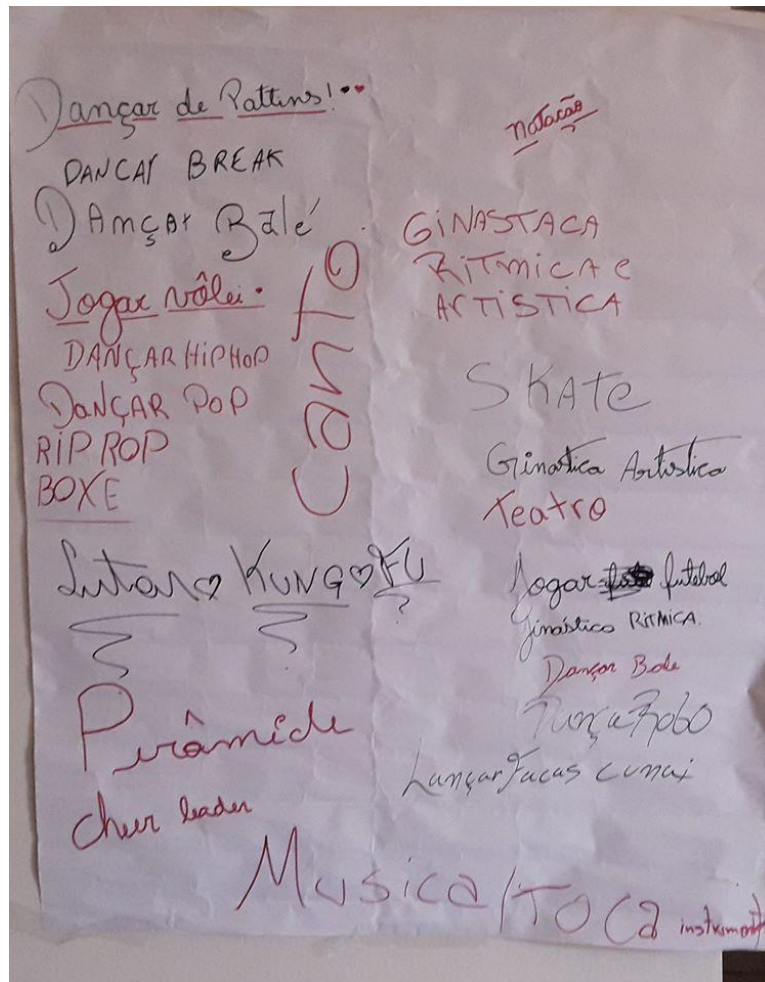 Dançar de Pattins!
DANCAr BREAK
DAnçAr Balé
Jogar vôlei.
DANÇAR HiPHOP
DANÇAR POP
RIP ROP
BOXE
canto
Lutar KUNG FU
Pirâmide
cheer leader
natacão
GiNASTACA
RiTmicA e
ARTISTICA
SKATe
Ginastica Artistica
Teatro
Jogar futebol
Jinástica RitMICA.
Dançar Bale
Robo
Lançar Facas
Musica/TOCa instrument